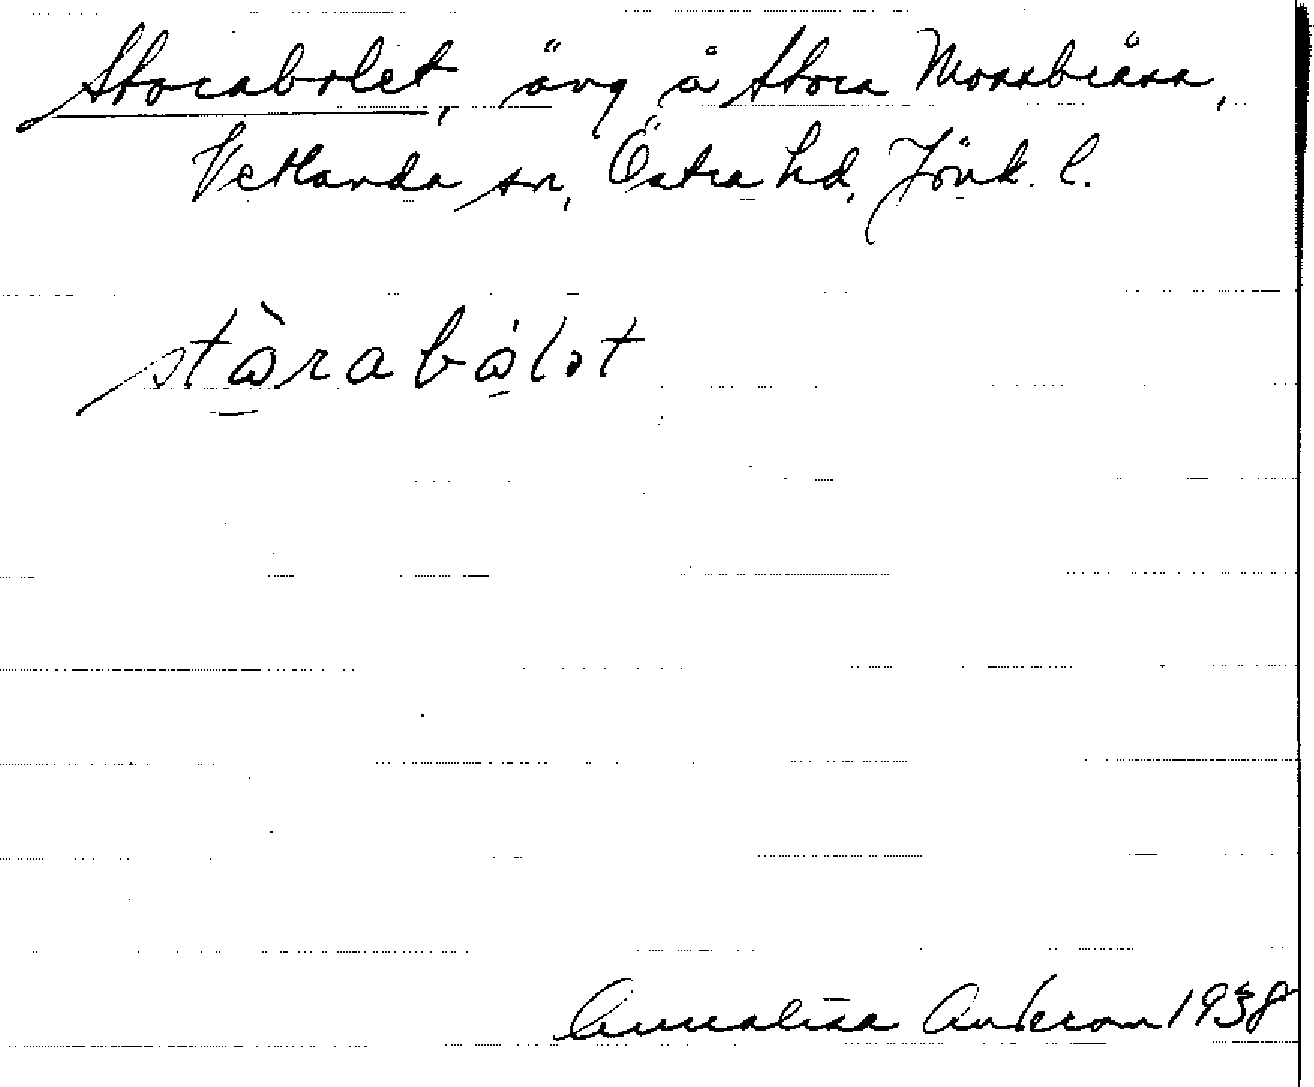 Storabolet, äng å Stora Mossbråna,
Vetlanda sn, Östra hd, Jönk. l.
stòrabólət
Annalisa Anderson 1938